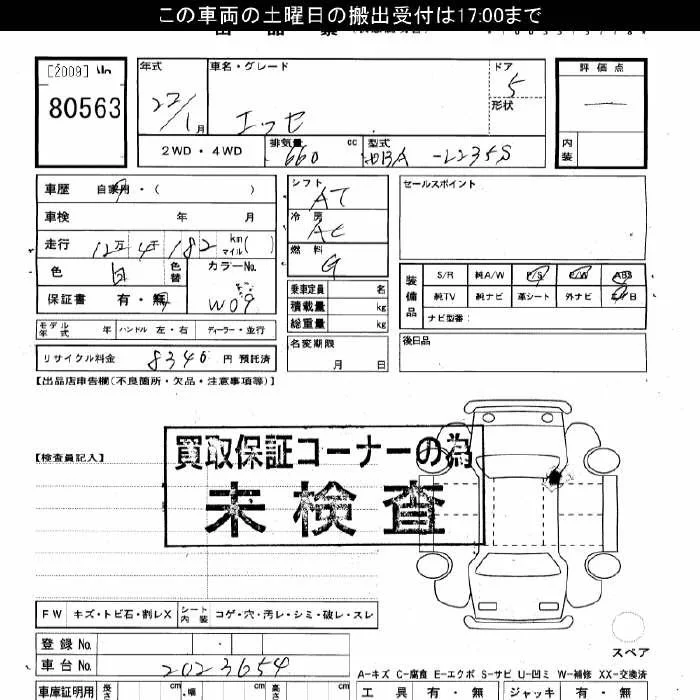 この車両の土曜日の搬出受付は17:00まで
[2009]
80563
年式 車名・グレード ドア 評価点
22/1月 エッセ 5
形状
2WD・4WD 排気量 660 cc 型式 -L235S 内装
車歴 自家用・( ) シフト AT セールスポイント
車検 年 月 冷房 AC
走行 12万4千182 km マイル( ) 燃料 G
色 白 色替 カラーNo. W09
保証書 有・無
乗車定員 名
積載量 kg
総重量 kg
装備品 S/R 純A/W P/S P/W ABS
純TV 純ナビ 革シート 外ナビ
ナビ型番:
モデル年式 年 ハンドル 左・右 ディーラー・並行
名変期限 月 日
後日品
リサイクル料金 8340 円 預託済
【出品店申告欄(不良箇所・欠品・注意事項等)】
【検査員記入】
買取保証コーナーの為
未検査
FW キズ・トビ石・割レX シート内装 コゲ・穴・汚レ・シミ・破レ・スレ
スペア
登録No.
車台No. 2023654
A-キズ C-腐食 E-エクボ S-サビ U-凹ミ W-補修 XX-交換済
車庫証明用 長さ cm 幅 cm 高さ cm 工具 有・無 ジャッキ 有・無